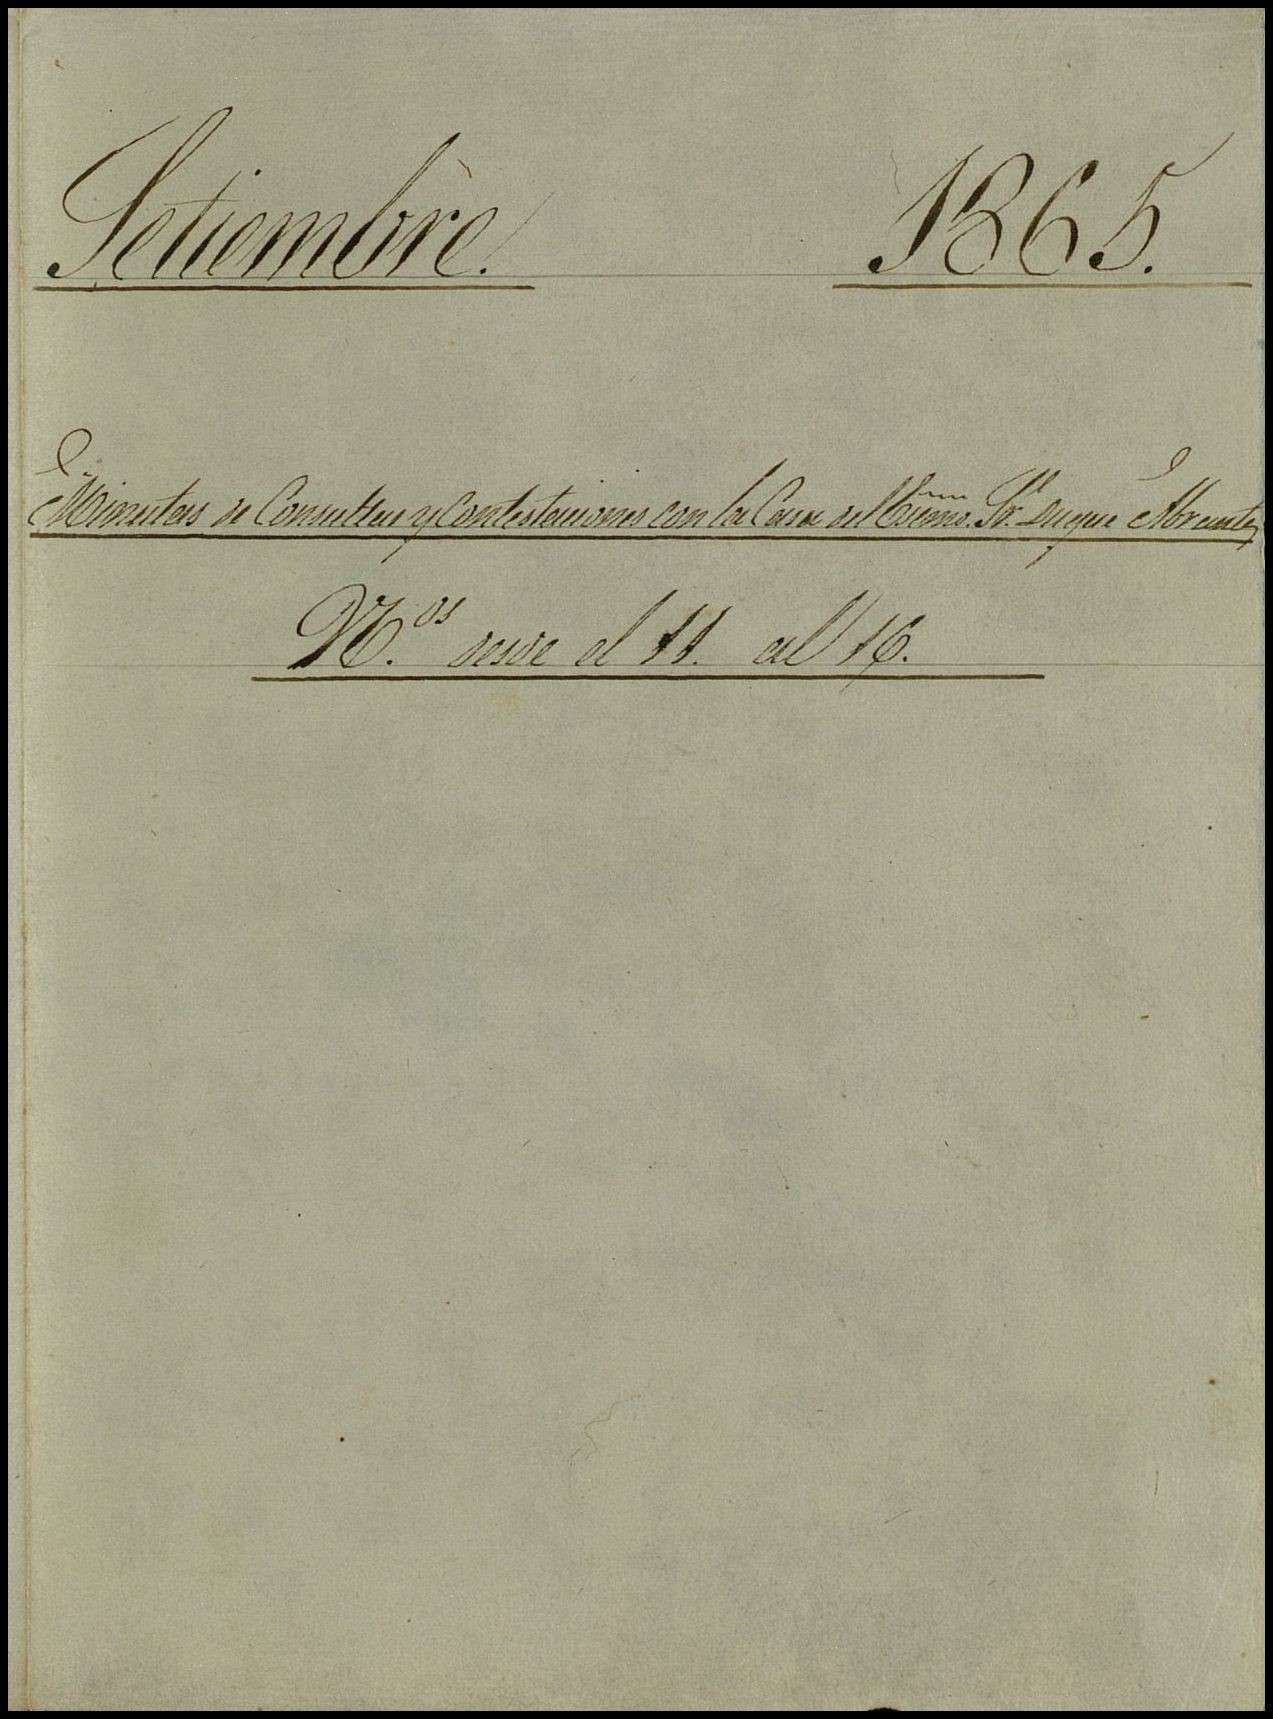 Setiembre. 1865.
Minutas de Consultas y Contestaciones con la Casa del Excmo. Sr. Duque Abrantes
N.os desde el 11. al 16.